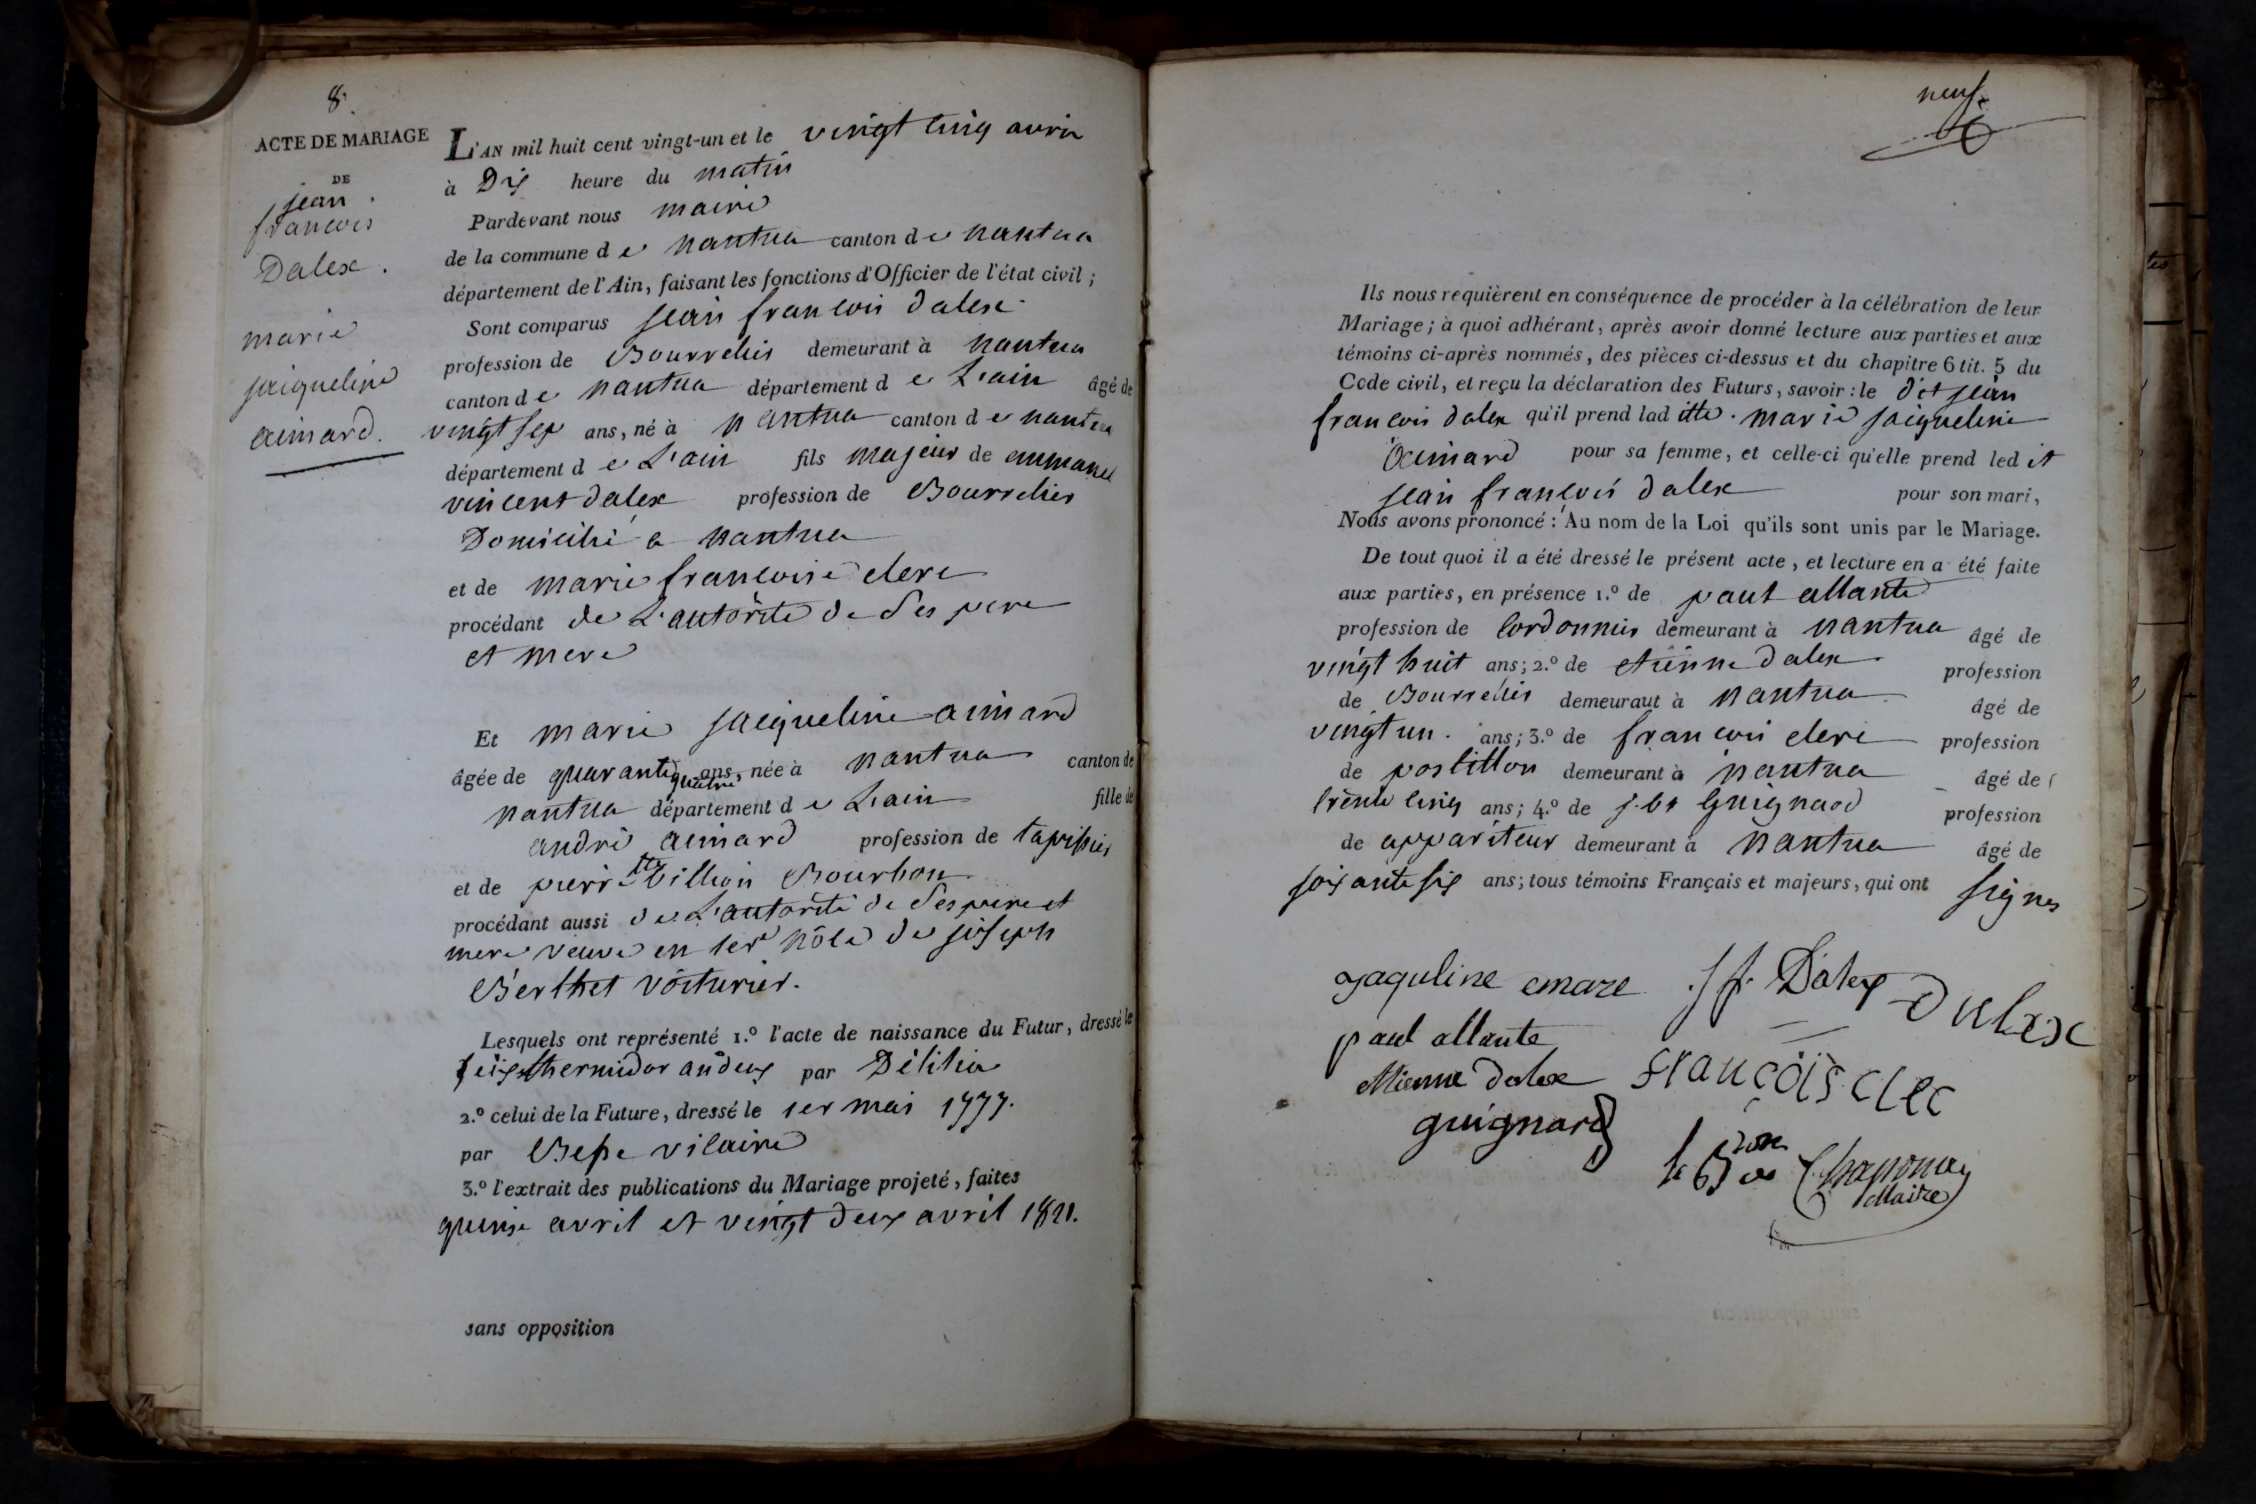 8.
ACTE DE MARIAGE
DE
jean
francois
Dalex.
marie
jacqueline
aimard.
L'AN mil huit cent vingt-un et le vingt cinq avril
à Dix heure du matin
Pardevant nous maire
de la commune d e nantua canton d e nantua
département de l'Ain, faisant les fonctions d'Officier de l'état civil;
Sont comparus jean francois dalex
profession de Bourrelier demeurant à nantua
canton d e nantua département d e L'ain âgé de
vingt sep ans, né à nantua canton d e nantua
département d e L'ain fils majeur de emmanuel
vincent dalex profession de Bourrelier
Domicilié a nantua
et de marie francoise clerc
procédant de L'autorite de Ses pere
et mere
Et marie jacqueline aimard
âgée de quarante quatre ans, née à nantua canton de
nantua département d e L'ain fille de
andré aimard profession de tapissier
et de pierrette villion Bourbon
procédant aussi de L'autorité de Ses pere et
mere veuve en 1er nôce de joseph
Berthet voiturier.
Lesquels ont représenté 1.º l'acte de naissance du Futur, dressé le
seize thermidor an deux par Délilia
2.º celui de la Future, dressé le 1er mai 1777.
par Besse vicaire
3.º l'extrait des publications du Mariage projeté, faites
quinze avril et vingt deux avril 1821.
sans opposition
neuf
Ils nous requièrent en conséquence de procéder à la célébration de leur
Mariage; à quoi adhérant, après avoir donné lecture aux parties et aux
témoins ci-après nommés, des pièces ci-dessus et du chapitre 6 tit. 5 du
Code civil, et reçu la déclaration des Futurs, savoir: le dit jean
francois dalex qu'il prend lad itte marie jacqueline
aimard pour sa femme, et celle-ci qu'elle prend led it
jean francois dalex pour son mari,
Nous avons prononcé: Au nom de la Loi qu'ils sont unis par le Mariage.
De tout quoi il a été dressé le présent acte, et lecture en a été faite
aux parties, en présence 1.º de paul allante
profession de Cordonnier demeurant à nantua âgé de
vingt huit ans; 2.º de etienne dalex profession
de Bourrelier demeuraut à nantua âgé de
vingt un. ans; 3.º de francois clerc profession
de postillon demeurant à nantua âgé de
trente cinq ans; 4.º de j.bte Guignard profession
de appariteur demeurant à nantua âgé de
soixante six ans; tous témoins Français et majeurs, qui ont signes
Jaquline emare J f. Dalex Dalex
paul allante
etienne dalex françois clec
guignard
le Bon de Chaponay
Maire